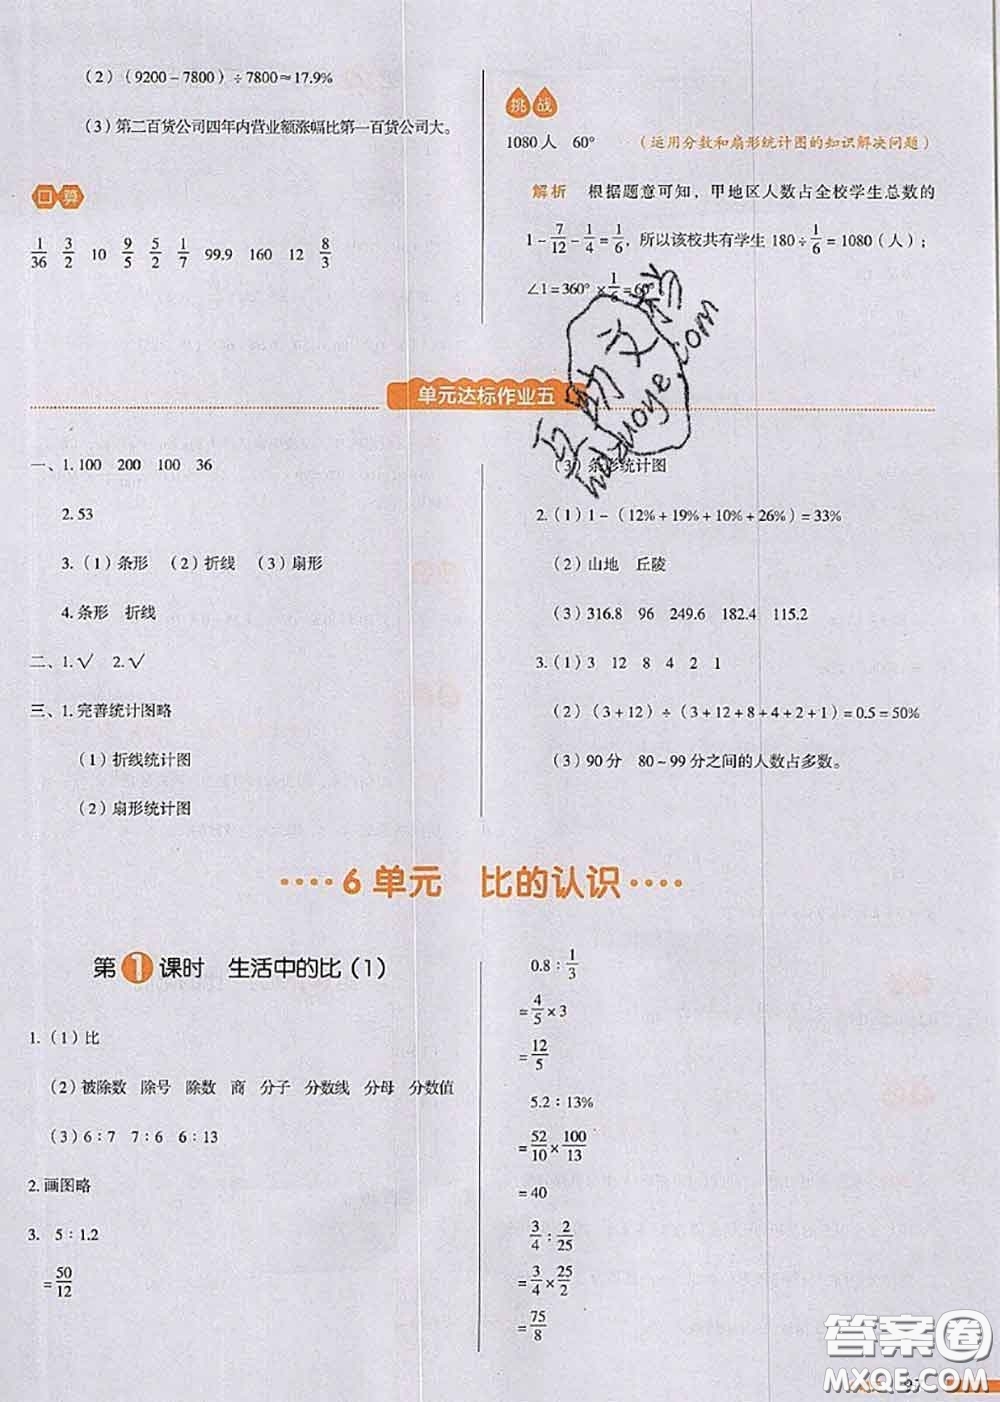 (2)(9200-7800)÷7800≈17.9%
(3)第二百货公司四年内营业额涨幅比第一百货公司大。
口算
1/36 3/2 10 9/5 5/2 1/7 99.9 160 12 8/3
挑战
1080人 60° (运用分数和扇形统计图的知识解决问题)
解析 根据题意可知，甲地区人数占全校学生总数的
1-7/12-1/4=1/6，所以该校共有学生180÷1/6=1080(人)；
∠1=360°×1/6=60°
单元达标作业五
一、1.100 200 100 36
2.53
3.(1)条形 (2)折线 (3)扇形
4.条形 折线
二、1.√ 2.√
三、1.完善统计图略
(1)折线统计图
(2)扇形统计图
(3)条形统计图
2.(1)1-(12%+19%+10%+26%)=33%
(2)山地 丘陵
(3)316.8 96 249.6 182.4 115.2
3.(1)3 12 8 4 2 1
(2)(3+12)÷(3+12+8+4+2+1)=0.5=50%
(3)90分 80~99分之间的人数占多数。
6单元 比的认识
第1课时 生活中的比(1)
1.(1)比
(2)被除数 除号 除数 商 分子 分数线 分母 分数值
(3)6:7 7:6 6:13
2.画图略
3. 5:1.2
=50/12
0.8:1/3
=4/5×3
=12/5
5.2:13%
=52/10×100/13
=40
3/4:2/25
=3/4×25/2
=75/8
答案圈
MXQE.COM